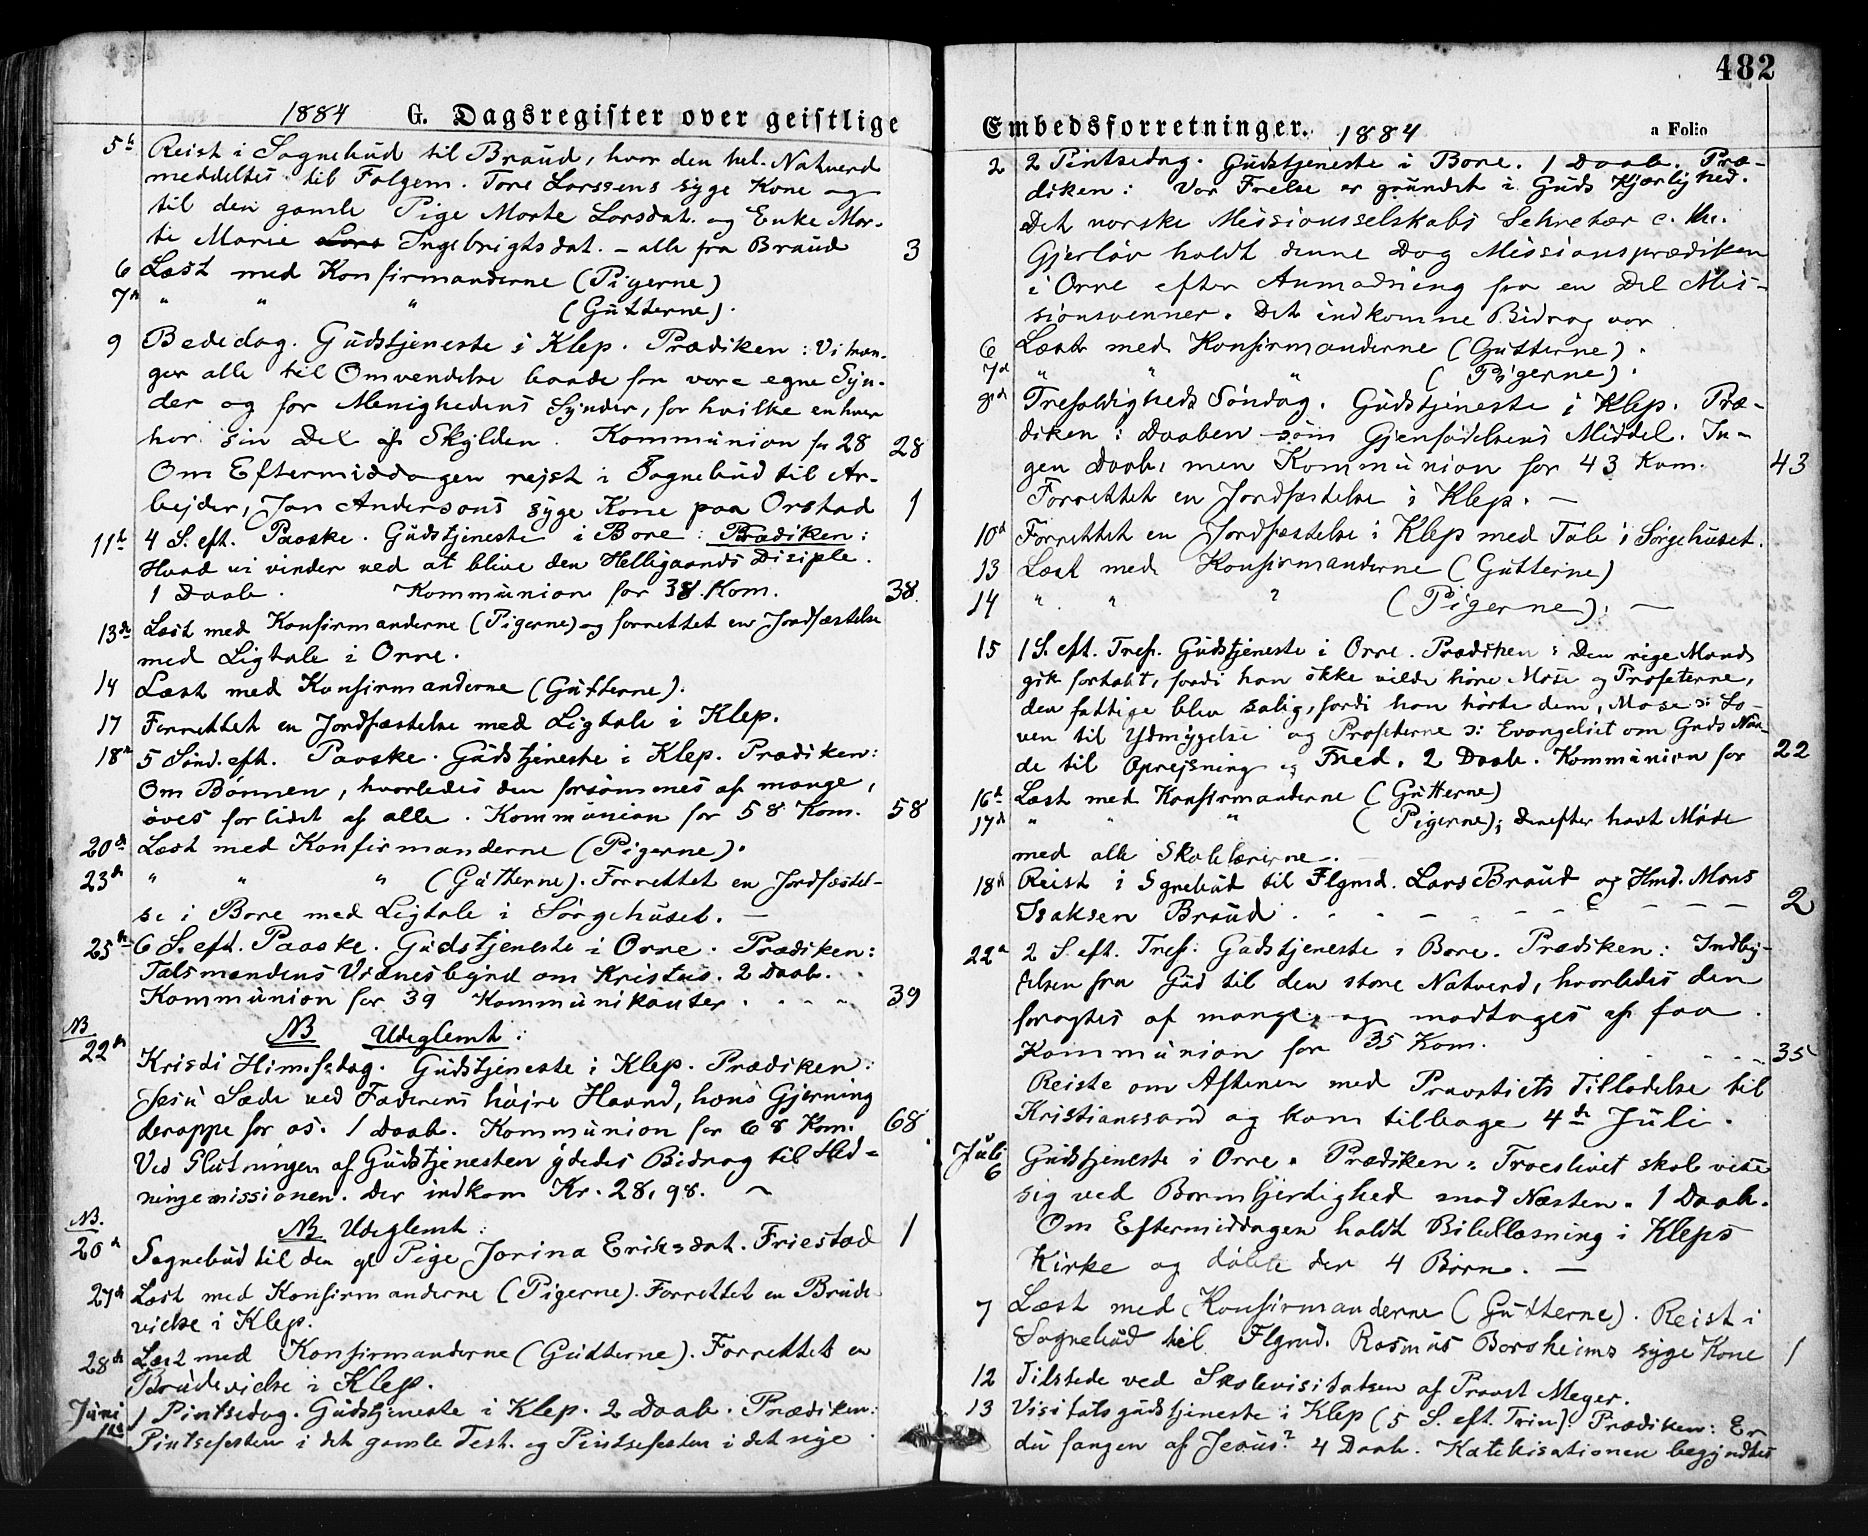 1884 G. Dagsregister over geistlige
5t Reist i Sognebud til Braud, hvor den hel. Natverd
meddeltes til Følgem. Tore Larssens syge Kone og
til den gamle Pige Marte Larsdat. og Enke Mar-
te Marie Lars Ingebrigtsdat. – alle fra Braud 3
6 Læst med Konfirmanderne (Pigerne)
7de " " " (Gutterne).
9 Bededag. Gudstjeneste i Klep. Prædiken: Vi træn-
ger alle til Omvendelse baade for vore egne Syn-
der og for Menighedens Synder, for hvilke enhver
har sin Del af Skylden. Kommunion for 28 28
Om Eftermiddagen rejst i Sognebud til Ar-
bejder, Jan Andersons syge Kone paa Orstad 1
11te 4 S. eft. Paaske. Gudstjeneste i Bore: Prædiken:
Hvad vi vinder ved at blive den Helligaands Disiple.
1 Daab. Kommunion for 38 Kom. 38.
13de Læst med Konfirmanderne (Pigerne) og forrettet en Jordfæstelse
med Ligtale i Orre.
14 Læst med Konfirmanderne (Gutterne).
17 Forrettet en Jordfæstelse med Ligtale i Klep.
18de 5 Sønd. eft. Paaske. Gudstjeneste i Klep. Prædiken:
Om Bønnen, hvorledes den forsømmes af mange,
øves for lidet af alle. Kommunion for 58 Kom. 58
20de Læst med Konfirmanderne (Pigerne).
23de " " " (Gutterne). Forrettet en Jordfæstel-
se i Bore med Ligtale i Sørgehuset. —
25de 6 S. eft. Paaske. Gudstjeneste i Orre. Prædiken:
Talsmandens Vidnesbyrd om Kristus. 2 Daab.
Kommunion for 39 Kommunikanter. 39
NB NB Udeglemt:
22de Kristi Himf.dag. Gudstjeneste i Klep. Prædiken:
Jesu Sæde ved Faderens højre Haand, hans Gjerning
deroppe for os. 1 Daab. Kommunion for 68 Kom. 68.
Ved Slutningen af Gudstjenesten ydedes Bidrag til Hed-
ningemissionen. Der indkom Kr. 28,98. ~
NB. NB Udeglemt:
20de Sognebud til den gl Pige Jorina Eriksdat. Friestad 1
27de Læst med Konfirmanderne (Pigerne). Forrettet en Brude-
vielse i Klep.
28de Læst med Konfirmanderne (Gutterne). Forrettet en
Brudevielse i Klep.
Juni 1 Pintsedag. Gudstjeneste i Klep. 2 Daab. Prædiken:
Pintsefesten i det gamle Test. og Pintsefesten i det nye
482
Embedsforretninger. 1884 a Folio
2 2 Pintsedag. Gudstjeneste i Bore. 1 Daab. Præ-
diken: Vor Frelse er grundet i Guds Kjærlighed.
Det norske Missionsselskabs Sekretær c. th.
Gjerløv holdt denne Dag Missionsprædiken
i Orre efter Anmodning fra en Del Mis-
sionsvenner. Det indkomne Bidrag var
6 Læst med Konfirmanderne (Gutterne).
7de " " " (Pigerne).
8de Trefoldigheds Søndag. Gudstjeneste i Klep. Præ-
diken: Daaben som Gjenfødelsens Middel. In-
gen Daab, men Kommunion for 43 Kom. 43
Forrettet en Jordfæstelse i Klep. —
10de Forrettet en Jordfæstelse i Klep med Tale i Sørgehuset.
13 Læst med Konfirmanderne (Gutterne)
14 " " " (Pigerne). —
15 1 S. eft. Tref. Gudstjeneste i Orre. Prædiken: Den rige Mand
gik fortabt, fordi han ikke vilde høre Mose og Profeterne,
den fattige blev salig, fordi han hørte dem, Mose ɔ: Lo-
ven til Ydmygelse og Profeterne ɔ: Evangeliet om Guds Naa-
de til Oprejsning og Fred. 2 Daab. Kommunion for 22
16de Læst med Konfirmanderne (Gutterne)
17de " " " (Pigerne); derefter havt Møde
med alle Skolelærerne.
18de Reist i Sgnebud til Flgmd. Lars Braud og Hmd. Mons
Isaksen Braud. 2
22de 2 S. eft. Tref. Gudstjeneste i Bore. Prædiken: Indby-
delsen fra Gud til den store Natverd, hvorledes den
foragtes af mange og modtages af faa.
Kommunion for 35 Kom. 35
Reiste om Aftenen med Provstiets Tilladelse til
Kristianssand og kom tilbage 4de Juli.
Juli 6 Gudstjeneste i Orre. Prædiken: Troeslivet skal vise
sig ved Barmhjertighed mod Næsten. 1 Daab.
Om Eftermiddagen holdt Bibellæsning i Kleps
Kirke og døbte der 4 Børn. —
7 Læst med Konfirmanderne (Gutterne). Reist i
Sognebud til Flgmd. Rasmus Borsheims syge Kone 1
12 Tilstede ved Skolevisitatsen af Provst Meyer.
13 Visitatsgudstjeneste i Klep (5 S. eft. Trin). Prædiken: Er
du fangen af Jesus? 4 Daab. Katekisationen begyndtes